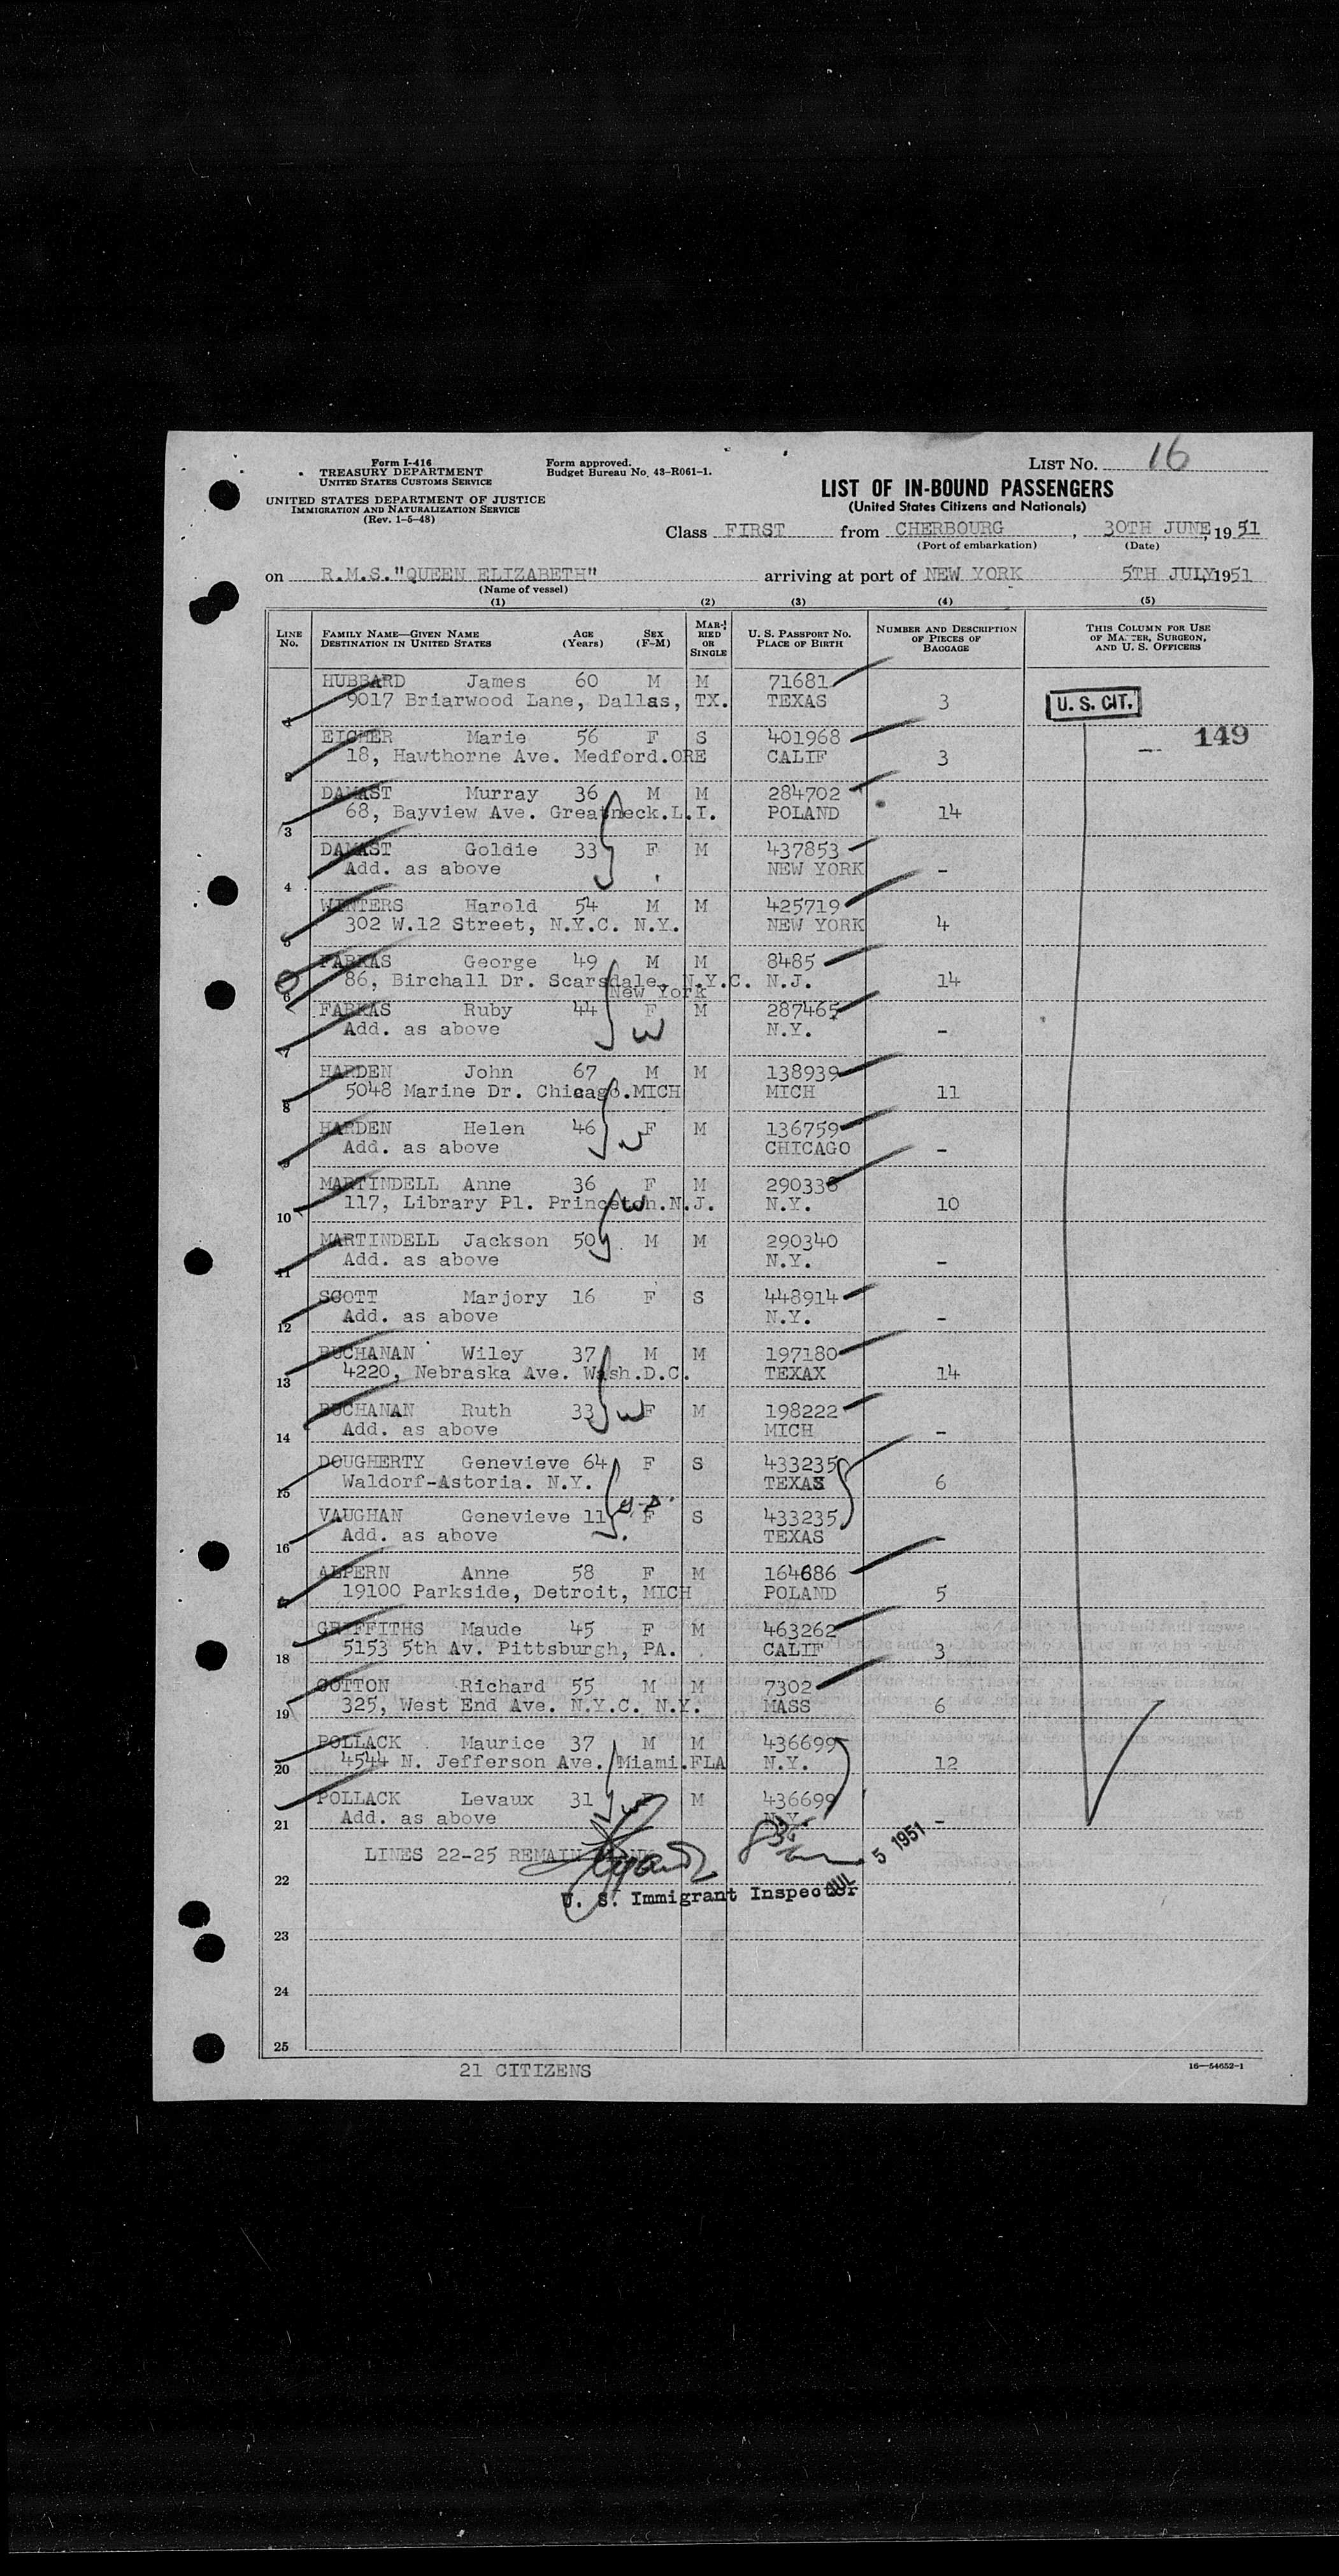 Form I-416
TREASURY DEPARTMENT
UNITED STATES CUSTOMS SERVICE
UNITED STATES DEPARTMENT OF JUSTICE
IMMIGRATION AND NATURALIZATION SERVICE
(Rev. 1-5-48)
Form approved.
Budget Bureau No. 43-R061-1.
LIST No. 16
LIST OF IN-BOUND PASSENGERS
(United States Citizens and Nationals)
Class FIRST from CHERBOURG, 30TH JUNE, 1951
(Port of embarkation) (Date)
on R.M.S."QUEEN ELIZABETH" arriving at port of NEW YORK 5TH JULY, 1951
(Name of vessel)
(1) (2) (3) (4) (5)
LINE No. FAMILY NAME—GIVEN NAME DESTINATION IN UNITED STATES AGE (Years) SEX (F-M) MARRIED OR SINGLE U. S. PASSPORT No. PLACE OF BIRTH NUMBER AND DESCRIPTION OF PIECES OF BAGGAGE THIS COLUMN FOR USE OF MASTER, SURGEON, AND U. S. OFFICERS
HUBBARD James 60 M M 71681
1 9017 Briarwood Lane, Dallas, TX. TEXAS 3 U. S. CIT.
EICHER Marie 56 F S 401968 149
2 18, Hawthorne Ave. Medford.ORE CALIF 3
DAMAST Murray 36 M M 284702
3 68, Bayview Ave. Greatneck.L.I. POLAND 14
DAMAST Goldie 33 F M 437853
4 Add. as above NEW YORK -
WINTERS Harold 54 M M 425719
5 302 W.12 Street, N.Y.C. N.Y. NEW YORK 4
FARKAS George 49 M M 8485
6 86, Birchall Dr. Scarsdale, N.Y.C. N.J. 14
New York
FARKAS Ruby 44 F M 287465
7 Add. as above W N.Y. -
HARDEN John 67 M M 138939
8 5048 Marine Dr. Chicago.MICH MICH 11
HARDEN Helen 46 F M 136759
9 Add. as above W CHICAGO -
MARTINDELL Anne 36 F M 290338
10 117, Library Pl. Princeton.N.J. W N.Y. 10
MARTINDELL Jackson 50 M M 290340
11 Add. as above N.Y. -
SCOTT Marjory 16 F S 448914
12 Add. as above N.Y. -
BUCHANAN Wiley 37 M M 197180
13 4220, Nebraska Ave. Wash.D.C. TEXAX 14
BUCHANAN Ruth 33 W F M 198222
14 Add. as above MICH -
DOUGHERTY Genevieve 64 F S 433235
15 Waldorf-Astoria. N.Y. TEXAS 6
VAUGHAN Genevieve 11 F S 433235
16 Add. as above TEXAS -
ALPERN Anne 58 F M 164686
17 19100 Parkside, Detroit, MICH POLAND 5
GRIFFITHS Maude 45 F M 463262
18 5153 5th Av. Pittsburgh, PA. CALIF 3
COTTON Richard 55 M M 7302
19 325, West End Ave. N.Y.C. N.Y. MASS 6
POLLACK Maurice 37 M M 436699
20 4544 N. Jefferson Ave. Miami.FLA N.Y. 12
POLLACK Levaux 31 W F M 436699
21 Add. as above N.Y. -
LINES 22-25 REMAIN
JUL 5 1951
22 U. S. Immigrant Inspector
23
24
25
21 CITIZENS
16—54652-1